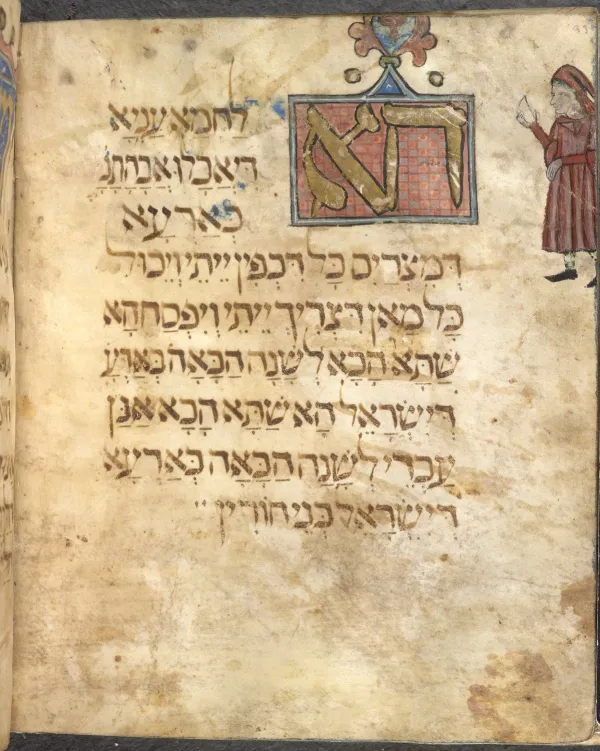 הא
לחמא עניא
די אכלו אבהתנ
בארעא
דמצרים כל דכפין ייתי וייכול
כל מאן דצריך ייתי ויפסח הא
שתא הכא לשנה הבאה בארע
דישראל הא שתא הכא אנן
עבדי לשנה הבאה בארעא
דישראל בני חורין